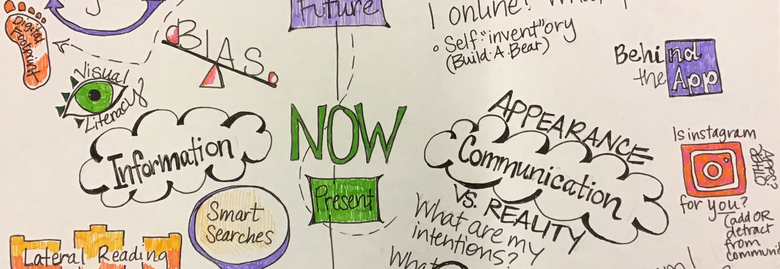 Future
BIAS
Digital
Footprint
Visual
Literacy?
Information
NOW
Present
Smart
Searches
Lateral Reading
I online?
• Self "invent"ory
(Build·A·Bear)
Behind
the App
APPEARANCE
Communication
VS. REALITY
What are my
intentions?
What
Is instagram
for you?
(add OR
detract
from